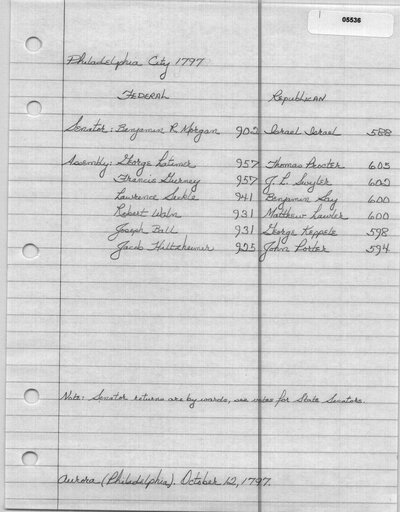 05536
Philadelphia City 1797
FEDERAL REPUBLICAN
Senator: Benjamin R. Morgan 902 Israel Israel 588
Assembly: George Latimer 957 Thomas Procter 605
Francis Gurney 957 J. L. Swyler 602
Laurence Seckle 941 Benjamin Say 600
Robert Waln 931 Matthew Lawler 600
Joseph Ball 931 George Keppele 598
Jacob Hiltzheimer 925 John Porter 594
Note: Senator returns are by wards, see votes for State Senators.
Aurora (Philadelphia). October 12, 1797.